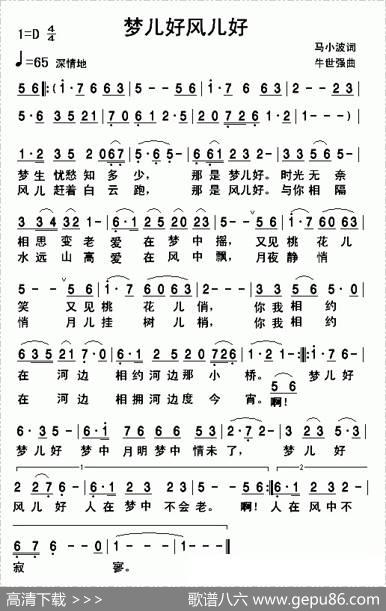 梦儿好风儿好
1=D 4/4
马小波词
♩=65 深情地
牛世强曲
5 6‖:(i· 7 6 6 3 | 5 - - 5 6 | i· 7 6 6 3 | 2 - - 2 3 |
5· 3 2 3 2 1 7 | 0 7 6 1 2· 5 | 2 0 5 7 2 6 | 1 - - - ) |
1· 2 3 5 2 0 6 7 | 5· 6 5 - | 6 6 1 2 3 2 - | 2 3 5 3 5 6
梦生忧愁知多少, 那是梦儿好。时光无奈
风儿赶着白云跑, 那是风儿好。与你相隔
3 3 4 3 2 1 - | 6· 1 2 5 2 0 2 3 | 5 - - 5 6 | i· 7 6 0 6 3 |
相思变老爱在梦中摇, 又见桃花儿
水远山高爱在风中飘, 月夜静悄
5 - - 5 6 | i· 7 6 0 6 3 | 2 - - 2 3 | 5· 3 5 0 3 5 |
笑 又见桃花儿俏, 你我相约
悄 月儿挂树儿梢, 你我相约
6 6 3 5 2 1 7· 0 | 6· 1 2 2 5 2 0 7 2 6 | 1· 2 1 - :‖: i· 7 6 - |
在河边相约河边那小桥。 梦儿好
5 6
在河边相拥河边度今宵。啊!
6· 3 5 - | 6· 1 7 6 5 3 2 3 5 | 2· 7 2 - | 3 2 3 5· 3 |
梦儿好 梦中月明梦中情未了, 梦儿好
1 2
2 2 7 6 - | 5· 5 2 3 2 7 6 | 5 - - 5 6 :‖ 5· 5 2 3 5· 3 |
风儿好 人在梦中不会老。 啊! 人在风中不
6 7 6 0 | 1 - - - | 1 - - - ‖
寂 寥。
高清下载 >>>
歌谱八六 www.gepu86.com